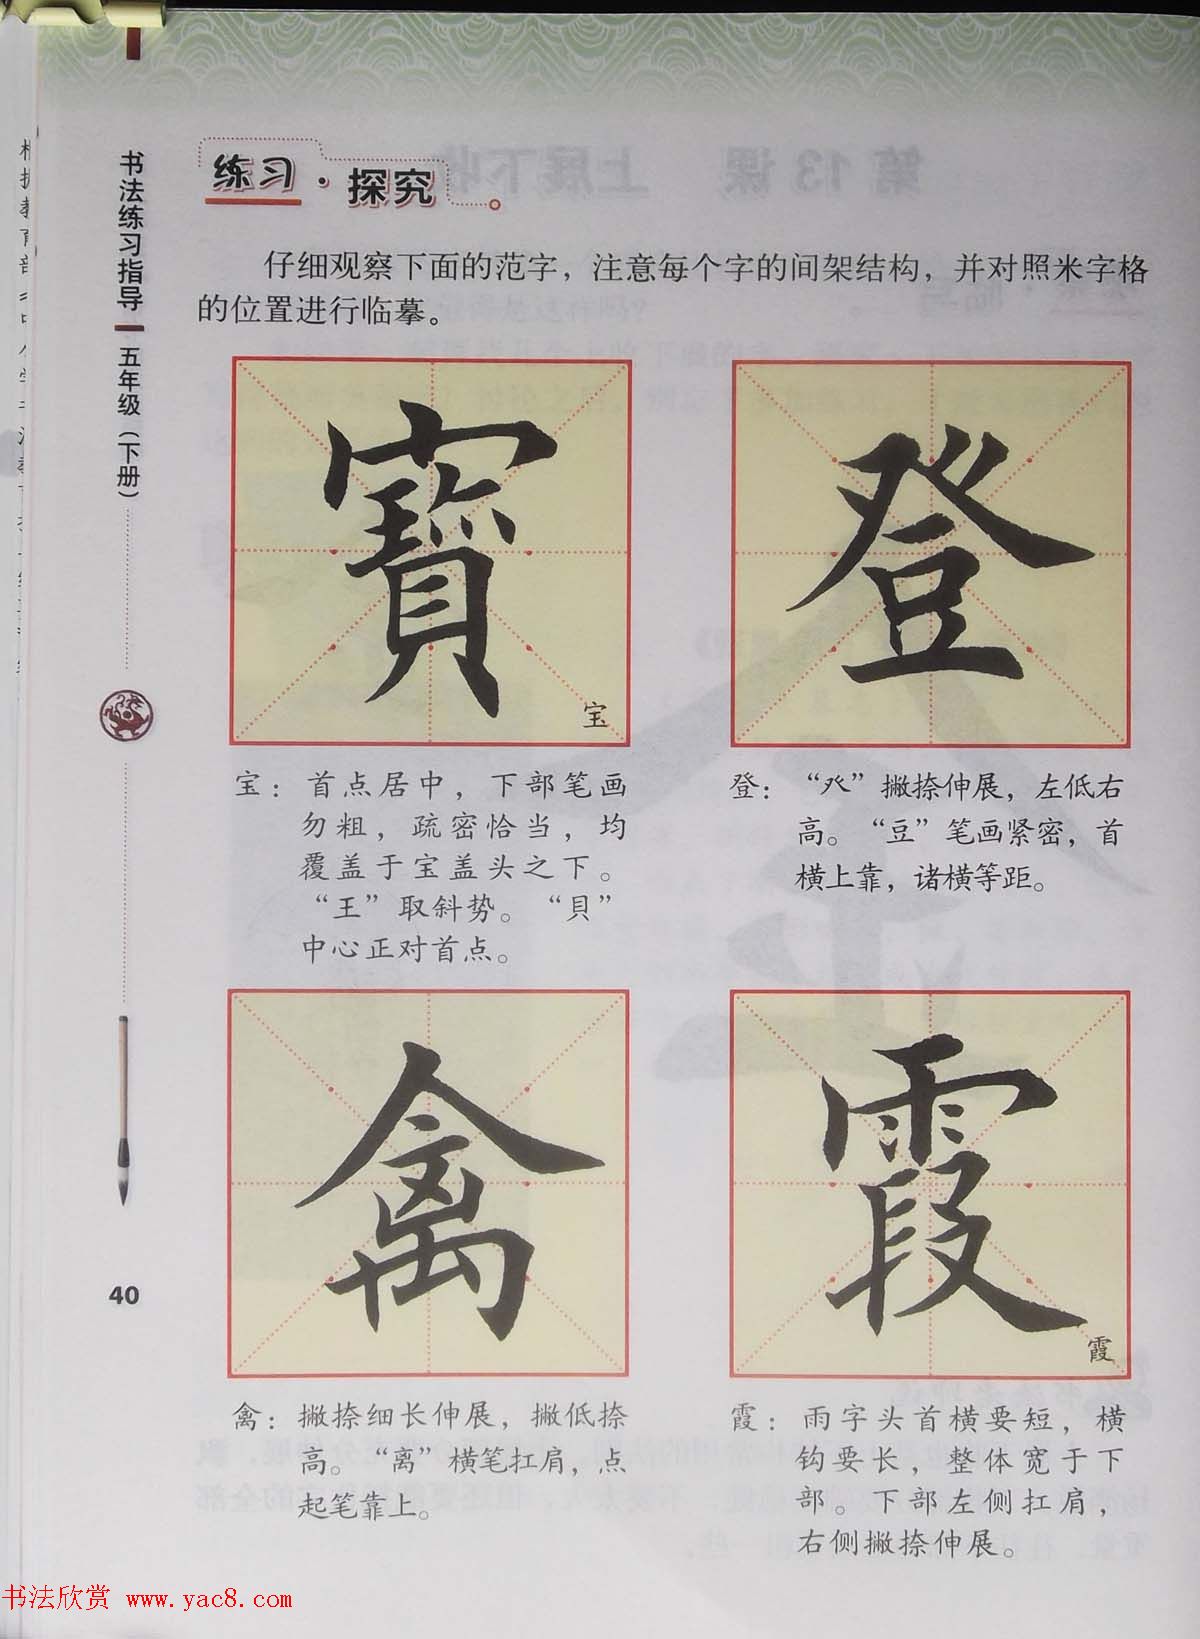 练习·探究
仔细观察下面的范字，注意每个字的间架结构，并对照米字格
的位置进行临摹。
寶
宝
登
宝：首点居中，下部笔画
勿粗，疏密恰当，均
覆盖于宝盖头之下。
“王”取斜势。“貝”
中心正对首点。
登：“癶”撇捺伸展，左低右
高。“豆”笔画紧密，首
横上靠，诸横等距。
禽
霞
霞
禽：撇捺细长伸展，撇低捺
高。“离”横笔扛肩，点
起笔靠上。
霞：雨字头首横要短，横
钩要长，整体宽于下
部。下部左侧扛肩，
右侧撇捺伸展。
书法练习指导
五年级（下册）
40
书法欣赏 www.yac8.com